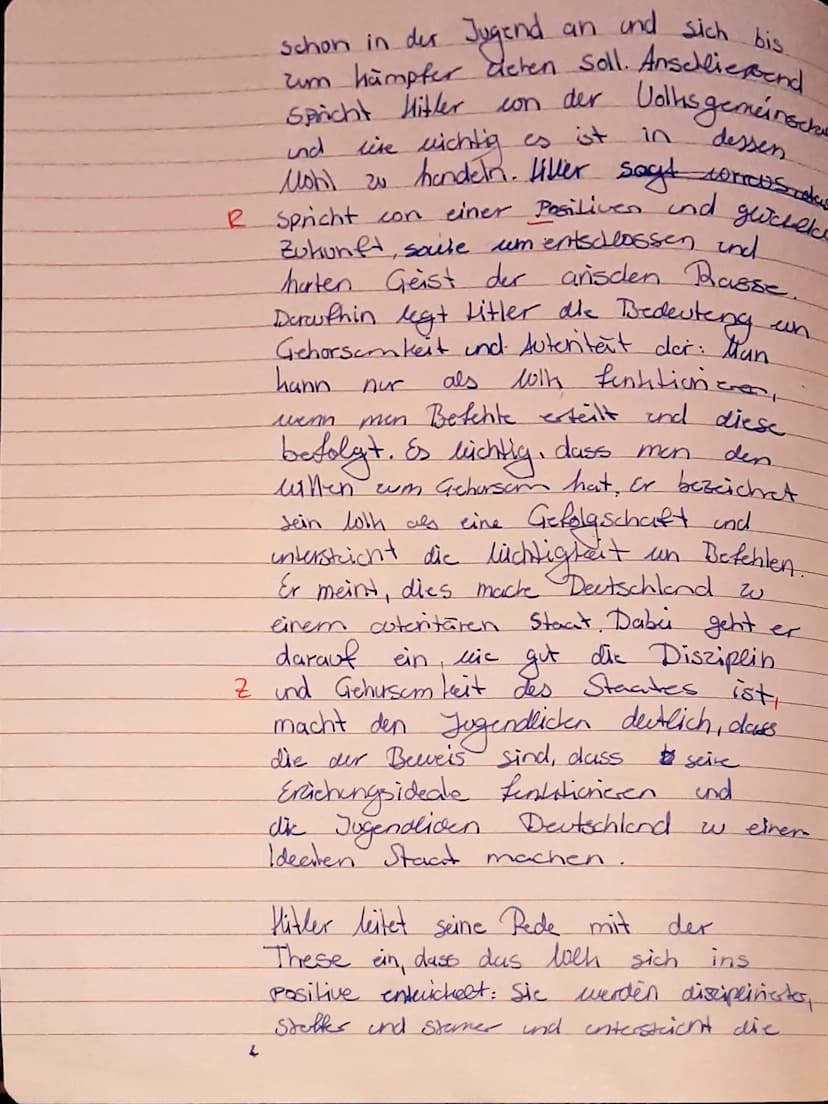 schon in der Jugend an und sich bis
zum Kämpfer ziehen soll. Anschließend
spricht Hitler von der Volksgemeinscha
und wie wichtig es ist in dessen
Wohl zu handeln. Hitler sagt voraus
R spricht von einer Positiven und
Zukunft, sowie vom entschlossen und
harten Geist der arischen Rasse.
Daraufhin legt Hitler die Bedeutung von
Gehorsamkeit und Autorität dar: Man
kann nur als Volk funktionieren,
wenn man Befehle erteilt und diese
befolgt. Es wichtig, dass man den
Willen zum Gehorsam hat. Er bezeichnet
sein Volk als eine Gefolgschaft und
unterstricht die Wichtigkeit von Befehlen.
Er meint, dies mache Deutschland zu
einem autoritären Staat. Dabei geht er
darauf ein, wie gut die Disziplin
Z und Gehorsamkeit des Staates ist,
macht den Jugendlichen deutlich, dass
die der Beweis sind, dass seine
Erziehungsideale funktionieren und
die Jugendlichen Deutschland zu einem
Idealen Staat machen.
Hitler leitet seine Rede mit der
These ein, dass das Volk sich ins
positive entwickelt: Sie werden disziplinierter,
und und unterstreicht die